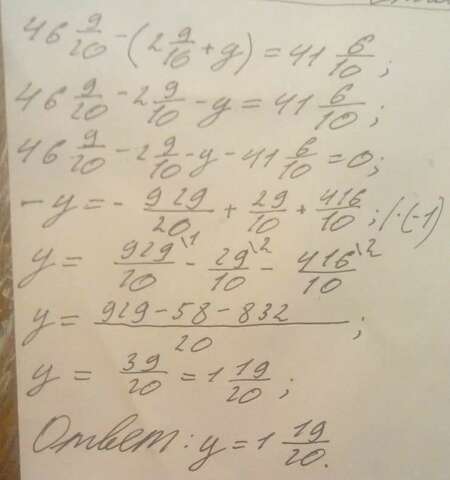 46 9/20 - (2 9/10 + y) = 41 6/10;
46 9/20 - 2 9/10 - y = 41 6/10;
46 9/20 - 2 9/10 - y - 41 6/10 = 0;
-y = - 929/20 + 29/10 + 416/10; /·(-1)
y = 929\1/20 - 29\2/10 - 416\2/10
y = 929-58-832/20;
y = 39/20 = 1 19/20;
Ответ: y = 1 19/20.